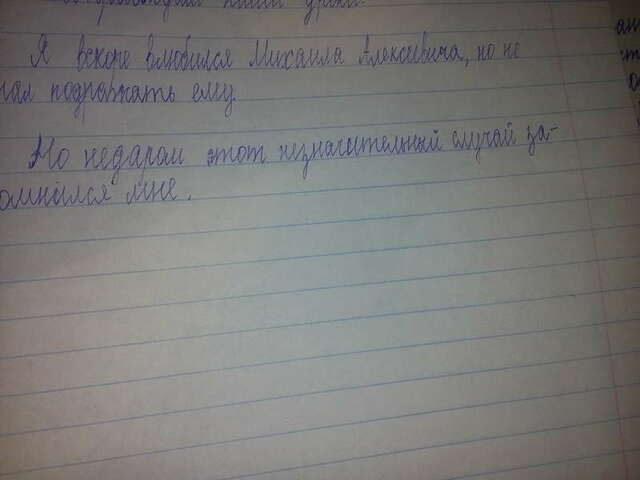 наши уроки.
Я вскоре влюбился Михаила Алексеевича, но не
чал подрожать ему.
Но недаром этот незначительный случай за-
омнился мне.